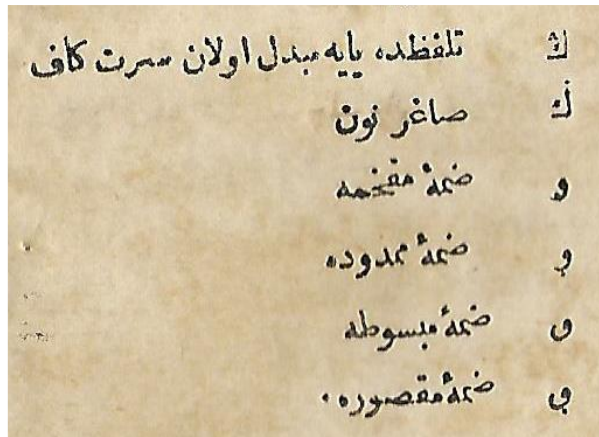 ڭ تلفظده يايه مبدل اولان سرت كاف
ڬ صاغر نون
و ضمهٔ مفخمه
و ضمهٔ ممدوده
و ضمهٔ مبسوطه
و ضمهٔ مقصوره.